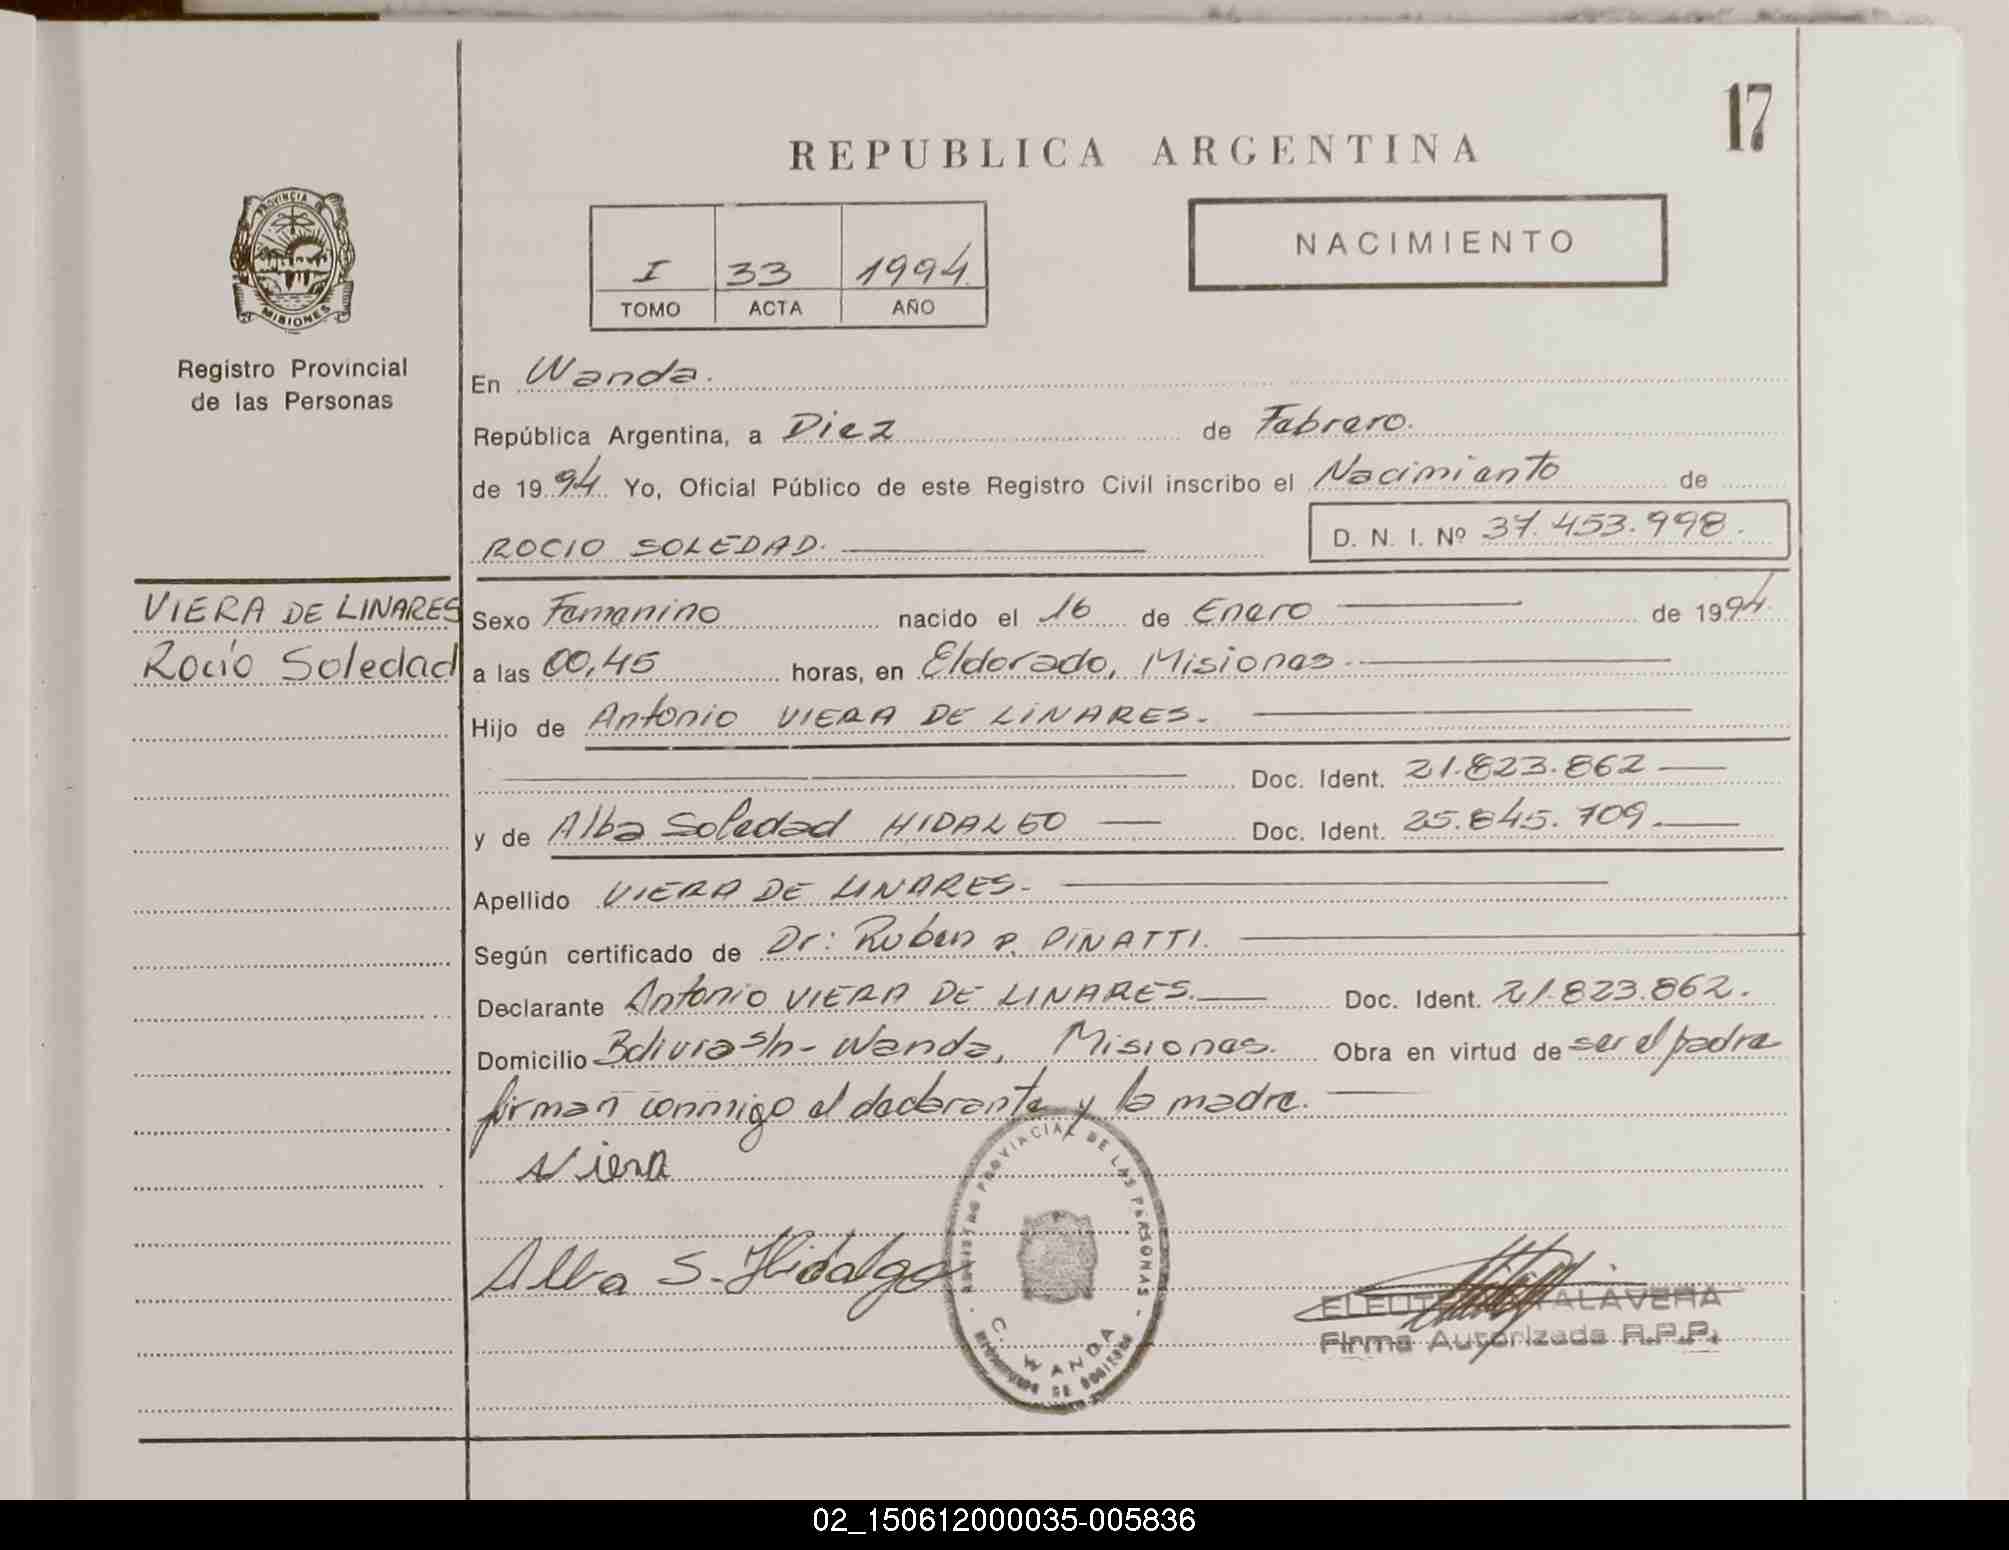 17
REPUBLICA ARGENTINA
PROVINCIA DE
MISIONES
Registro Provincial
de las Personas
I 33 1994
TOMO ACTA AÑO
NACIMIENTO
En Wanda.
República Argentina, a Diez de Febrero.
de 1994 Yo, Oficial Público de este Registro Civil inscribo el Nacimiento de
ROCIO SOLEDAD. D. N. I. Nº 37.453.998.
VIERA DE LINARES
Rocío Soledad
Sexo Femenino nacido el 16 de Enero de 1994.
a las 00,45 horas, en Eldorado, Misiones.
Hijo de Antonio VIERA DE LINARES.
Doc. Ident. 21.823.862
y de Alba Soledad HIDALGO Doc. Ident. 25.845.709.
Apellido VIERA DE LINARES.
Según certificado de Dr: Ruben P. PINATTI.
Declarante Antonio VIERA DE LINARES. Doc. Ident. 21.823.862.
Domicilio Bolivia s/n - Wanda, Misiones. Obra en virtud de ser el padre
firman conmigo el declarante y la madre.
Viera
Alba S. Hidalgo
REGISTRO PROVINCIAL DE LAS PERSONAS
WANDA
TALAVERA
Firma Autorizada R.P.P.
02_150612000035-005836